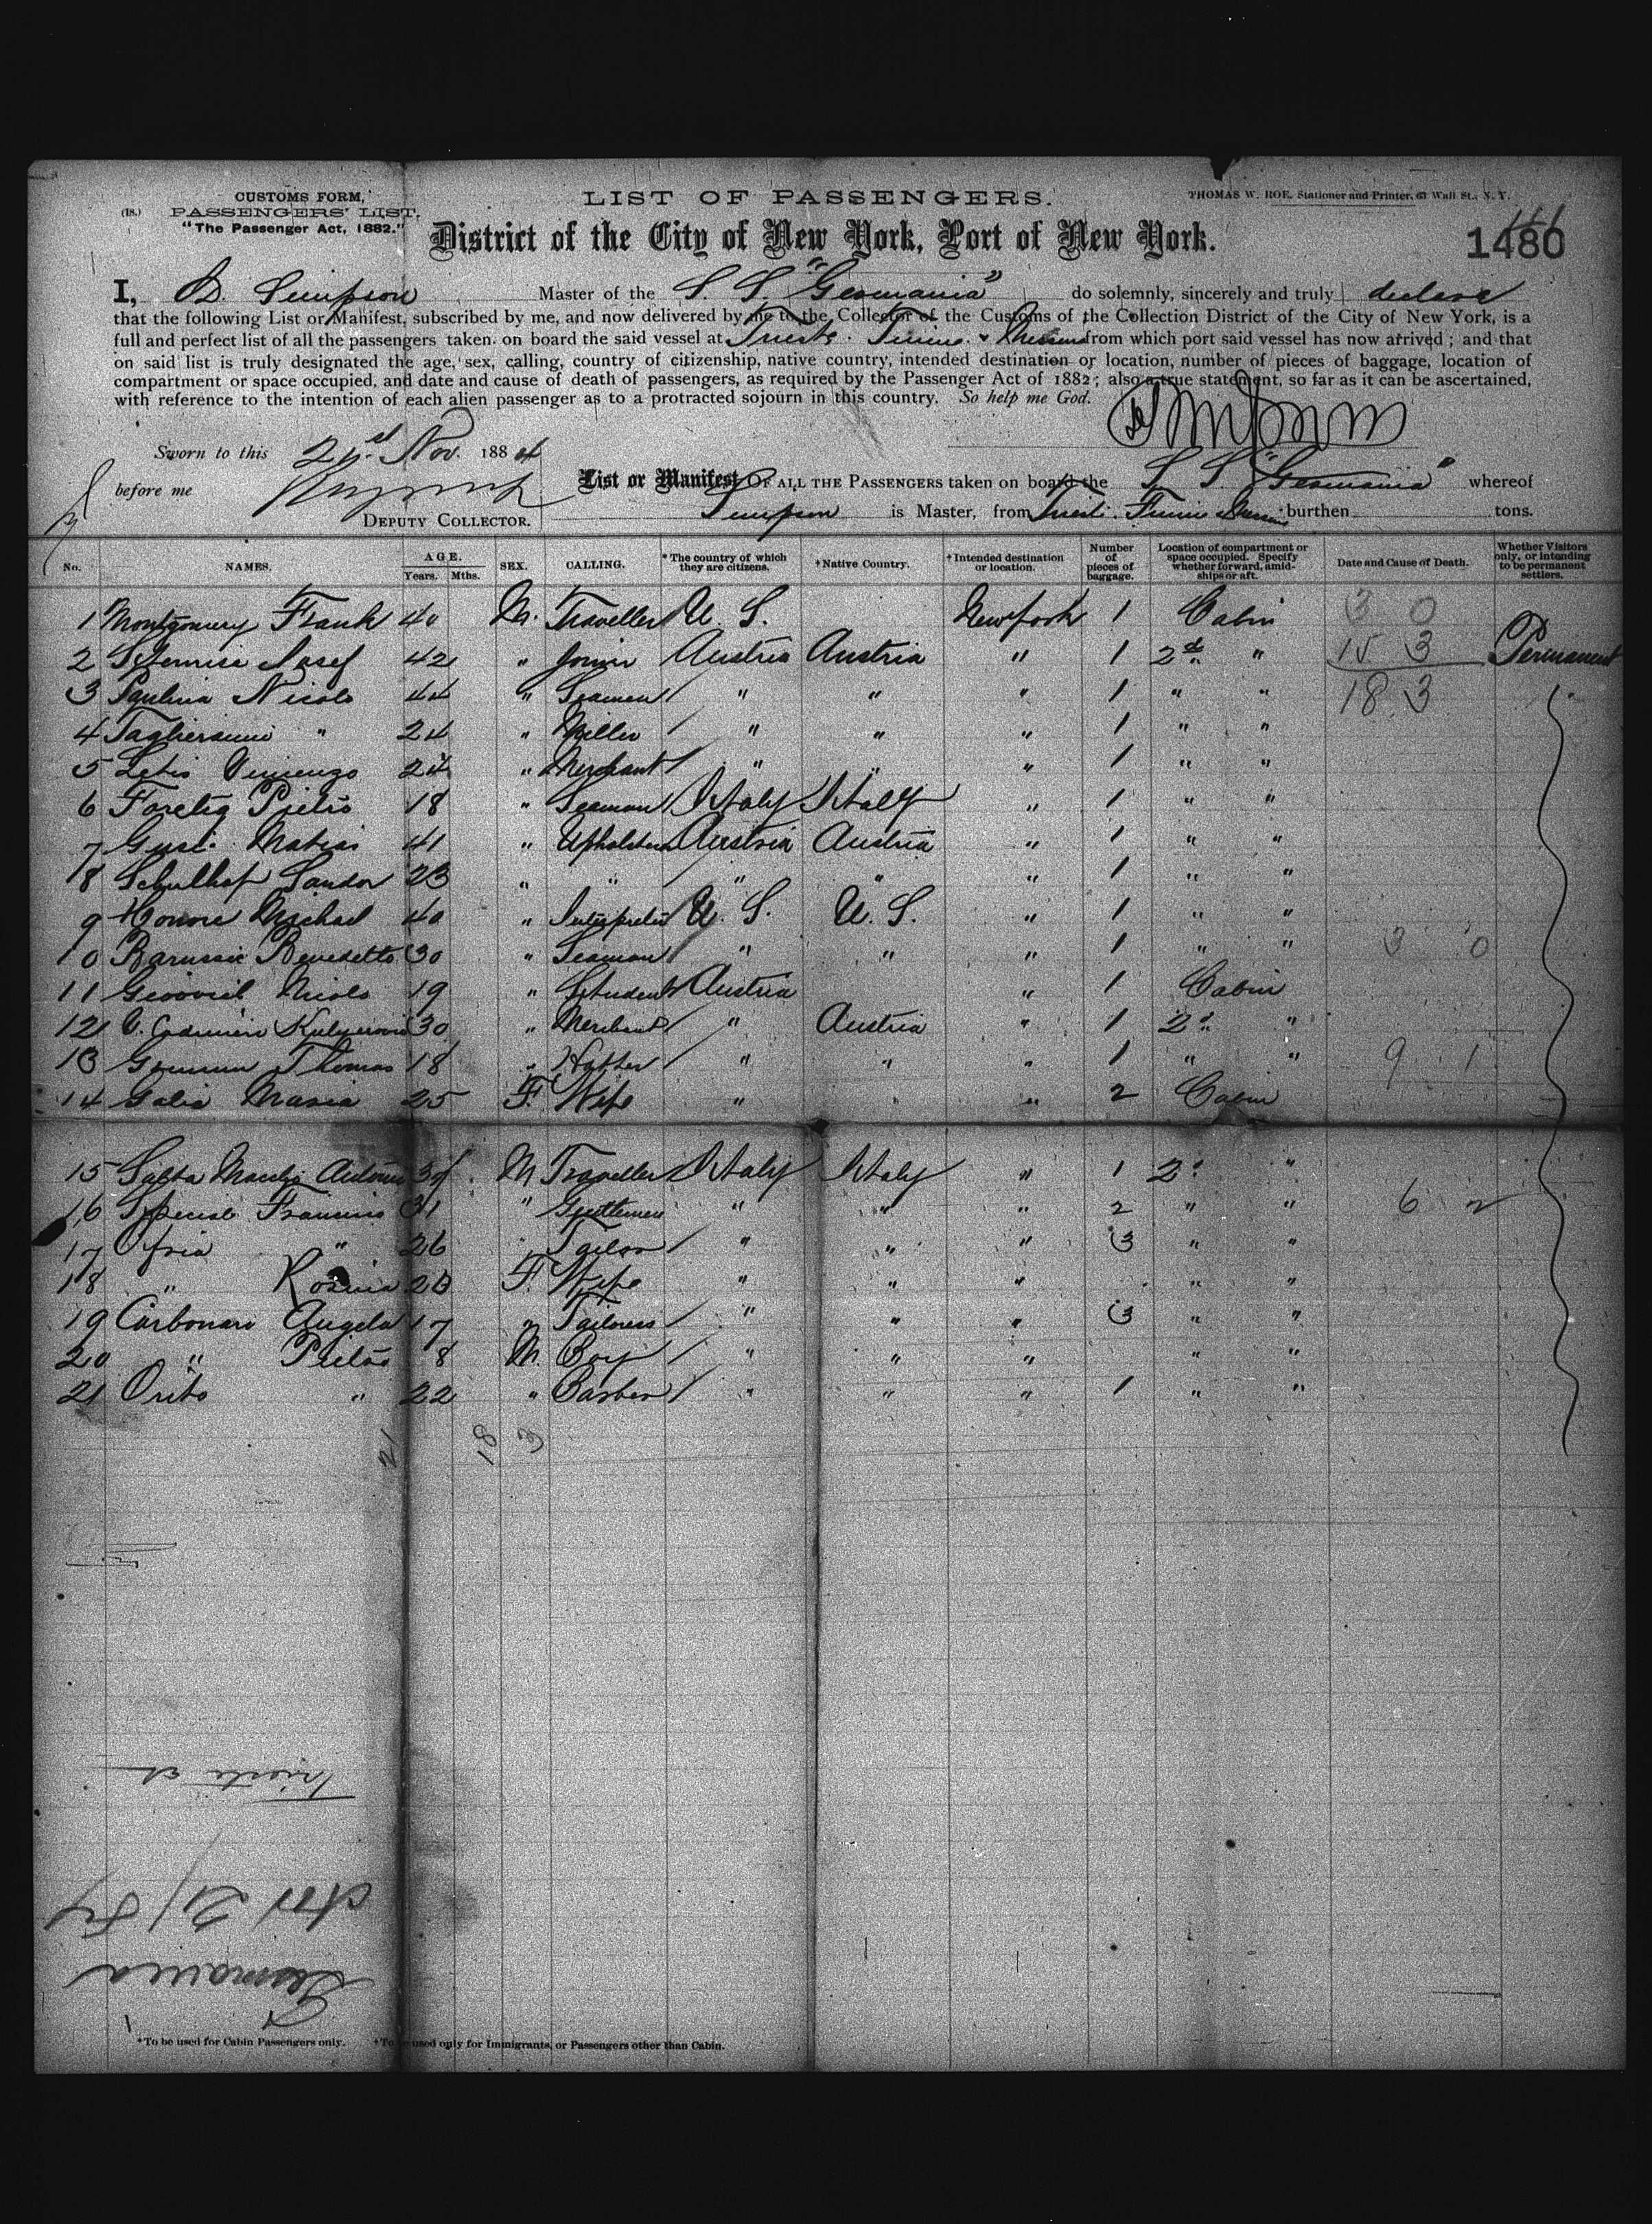 CUSTOMS FORM,
(18.) PASSENGERS' LIST.
"The Passenger Act, 1882."
LIST OF PASSENGERS.
THOMAS W. ROE, Stationer and Printer, 63 Wall St., N. Y.
District of the City of New York, Port of New York.
1480
I, D. Simpson Master of the S. S. "Germania" do solemnly, sincerely and truly declare
that the following List or Manifest, subscribed by me, and now delivered by me to the Collector of the Customs of the Collection District of the City of New York, is a
full and perfect list of all the passengers taken on board the said vessel at Trieste. Fiume & Messina from which port said vessel has now arrived; and that
on said list is truly designated the age, sex, calling, country of citizenship, native country, intended destination or location, number of pieces of baggage, location of
compartment or space occupied, and date and cause of death of passengers, as required by the Passenger Act of 1882; also a true statement, so far as it can be ascertained,
with reference to the intention of each alien passenger as to a protracted sojourn in this country. So help me God.
DSimpson
Sworn to this 21st Nov. 1884
before me
DEPUTY COLLECTOR.
List or Manifest OF ALL THE PASSENGERS taken on board the S. S. "Germania" whereof
Simpson is Master, from Trieste. Fiume & Messina burthen tons.
No. NAMES. AGE. Years. Mths. SEX. CALLING. *The country of which they are citizens. †Native Country. †Intended destination or location. Number of pieces of baggage. Location of compartment or space occupied. Specify whether forward, amidships or aft. Date and Cause of Death. Whether Visitors only, or intending to be permanent settlers.
1 Montgomery Frank 40 M. Traveller U. S. New York 1 Cabin 3 0
2 Josef 42 " Joiner Austria Austria " 1 2d " 15 3 Permanent
3 Paulina Nicolo 44 " Seaman " " " 1 " " 18 3 "
4 " 24 " Miller " " " 1 " "
5 Vincenzo 24 " Merchant " " " 1 " "
6 Foretig Pietro 18 " Seaman Italy Italy " 1 " "
7 Matias 41 " Upholsterer Austria Austria " 1 " "
8 Schulhof Sandor 23 " " " " " 1 " "
9 Honore Michael 40 " Interpreter U. S. U. S. " 1 " "
10 Benedetto 30 " Seaman " " " 1 " " 3 0
11 Nicolo 19 " Student Austria " 1 Cabin
12 30 " Merchant " Austria " 1 2d "
13 Thomas 18 " Hatter " " " 1 " " 9 1
14 Galia Maria 25 F. Wife " " " 2 Cabin
15 M Traveller Italy Italy " 1 2d "
16 31 " Gentleman " " " 2 " " 6 2
17 " 26 " Tailor " " " 3 " "
18 " Rosina F. Wife " " " " "
19 Carbonari Angela 17 " Tailoress " " " 3 " "
20 " Pietro 8 M. Boy " " " " "
21 Orito " 22 " Barber " " " 1 " "
21 18 3
Trieste
Nov 21/84
Germania
*To be used for Cabin Passengers only. †To be used only for Immigrants, or Passengers other than Cabin.